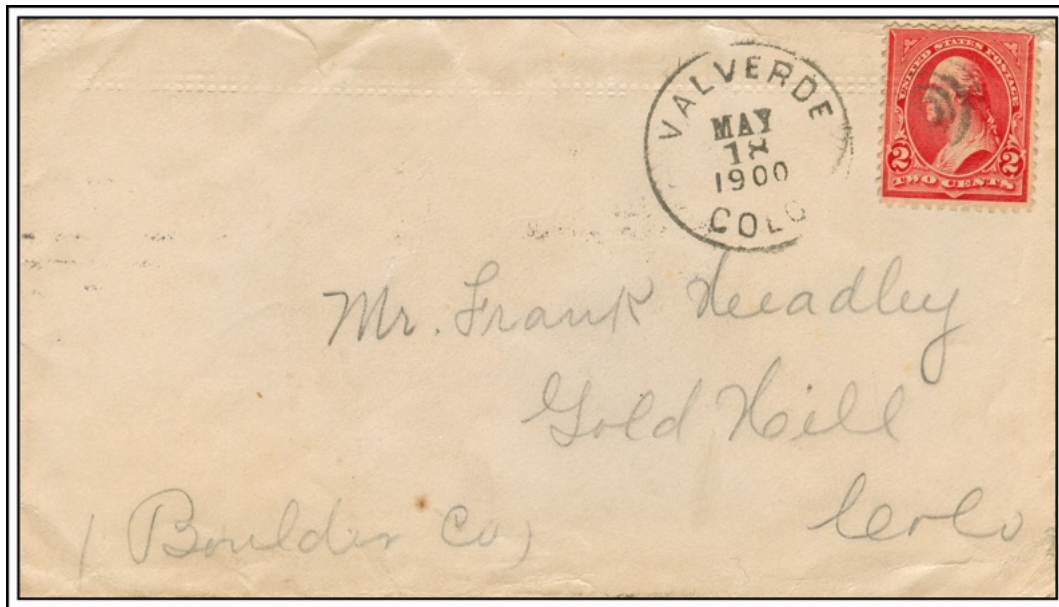 VALVERDE
MAY
18
1900
COLO
UNITED STATES POSTAGE
2 2
TWO CENTS
Mr. Frank Headley
Gold Hill
Colo
(Boulder Co)